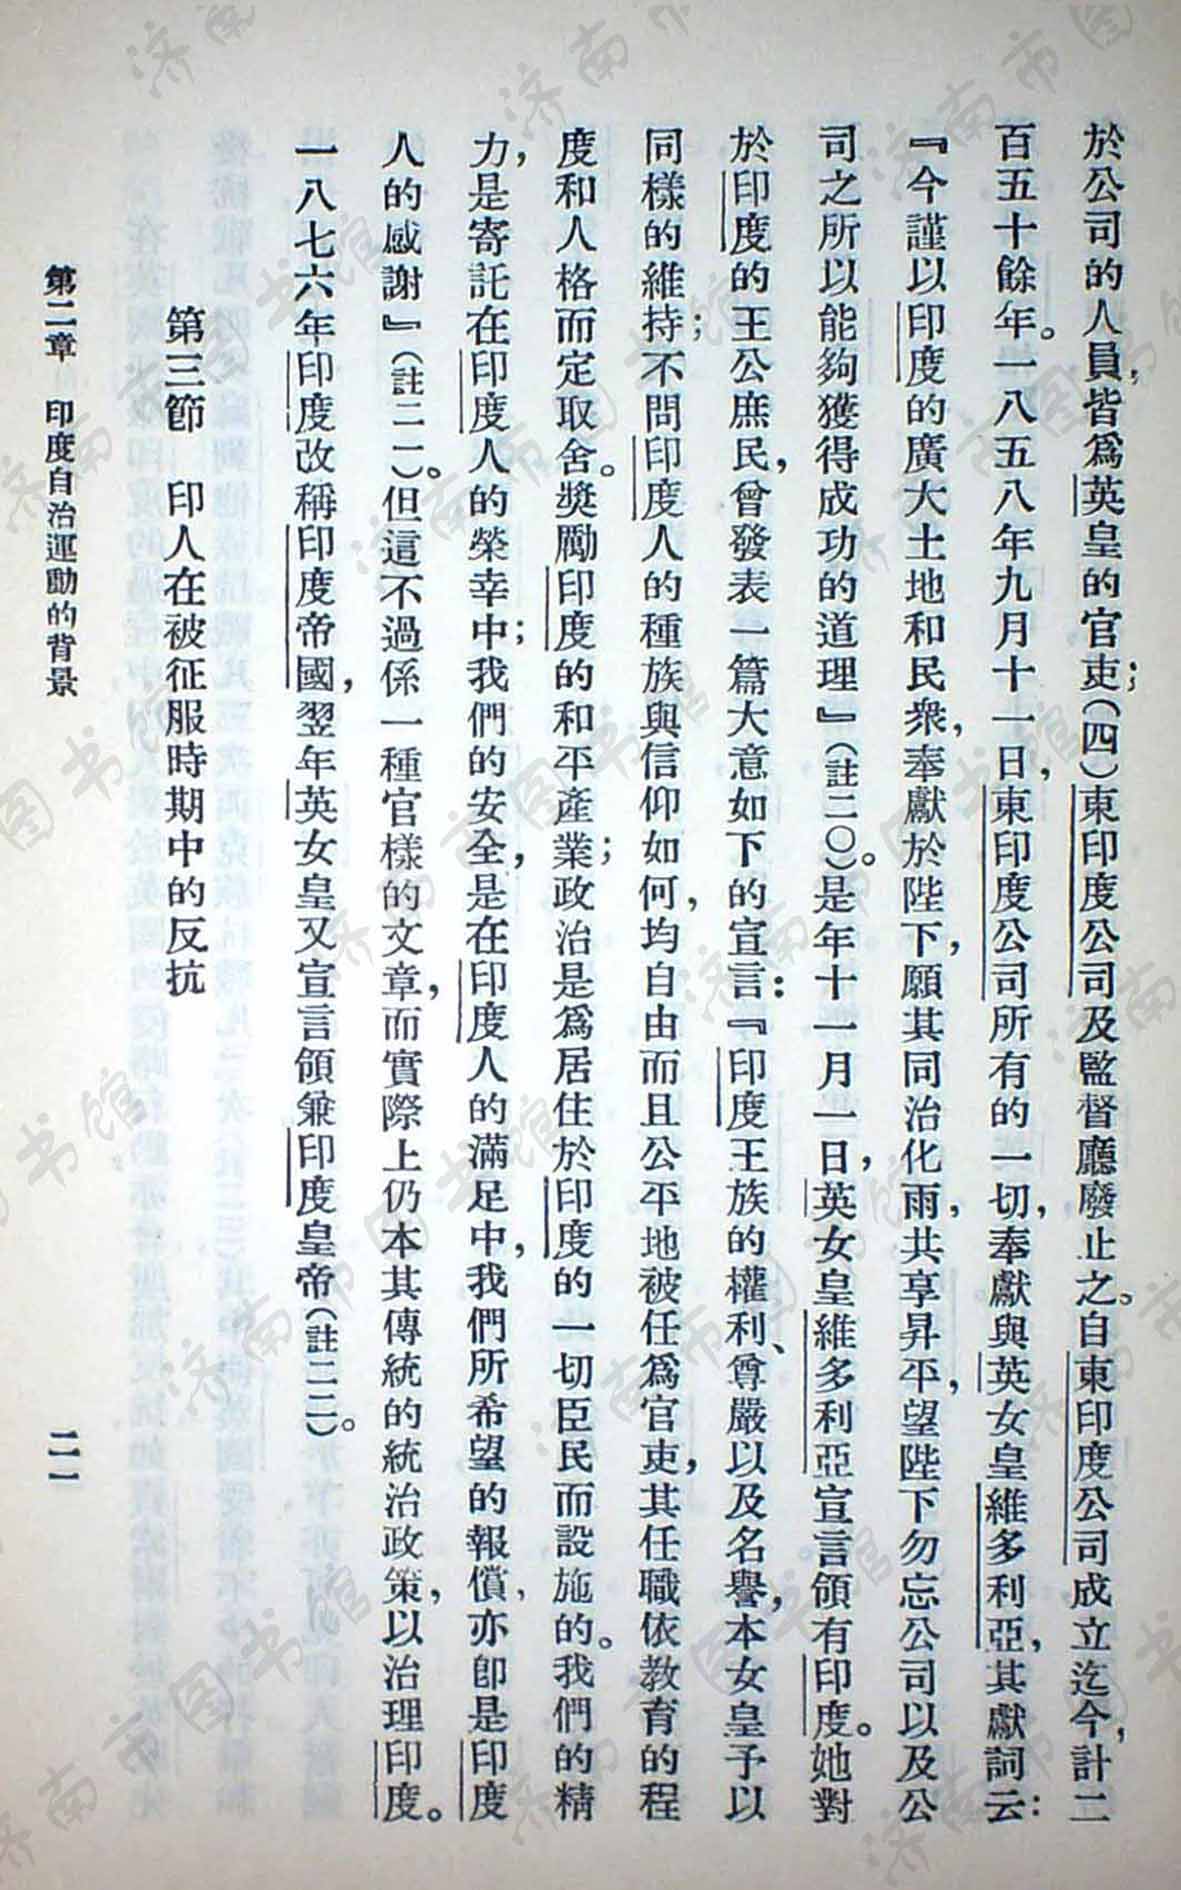 於公司的人員，皆爲英皇的官吏；（四）東印度公司及監督廳廢止之。自東印度公司成立迄今，計二
百五十餘年。一八五八年九月十一日，東印度公司所有的一切，奉獻與英女皇維多利亞，其獻詞云：
『今謹以印度的廣大土地和民衆，奉獻於陛下，願其同治化雨，共享昇平，望陛下勿忘公司以及公
司之所以能夠獲得成功的道理』（註二〇）。是年十一月一日，英女皇維多利亞宣言領有印度。她對
於印度的王公庶民，曾發表一篇大意如下的宣言：『印度王族的權利、尊嚴以及名譽，本女皇予以
同樣的維持；不問印度人的種族與信仰如何，均自由而且公平地被任爲官吏，其任職依教育的程
度和人格而定取舍。獎勵印度的和平產業；政治是爲居住於印度的一切臣民而設施的。我們的精
力，是寄託在印度人的榮幸中；我們的安全，是在印度人的滿足中，我們所希望的報償，亦卽是印度
人的感謝』（註二一）。但這不過係一種官樣的文章，而實際上仍本其傳統的統治政策，以治理印度。
一八七六年印度改稱印度帝國，翌年英女皇又宣言領兼印度皇帝（註二二）。
第三節　印人在被征服時期中的反抗
第二章　印度自治運動的背景
二一
济南市图书馆